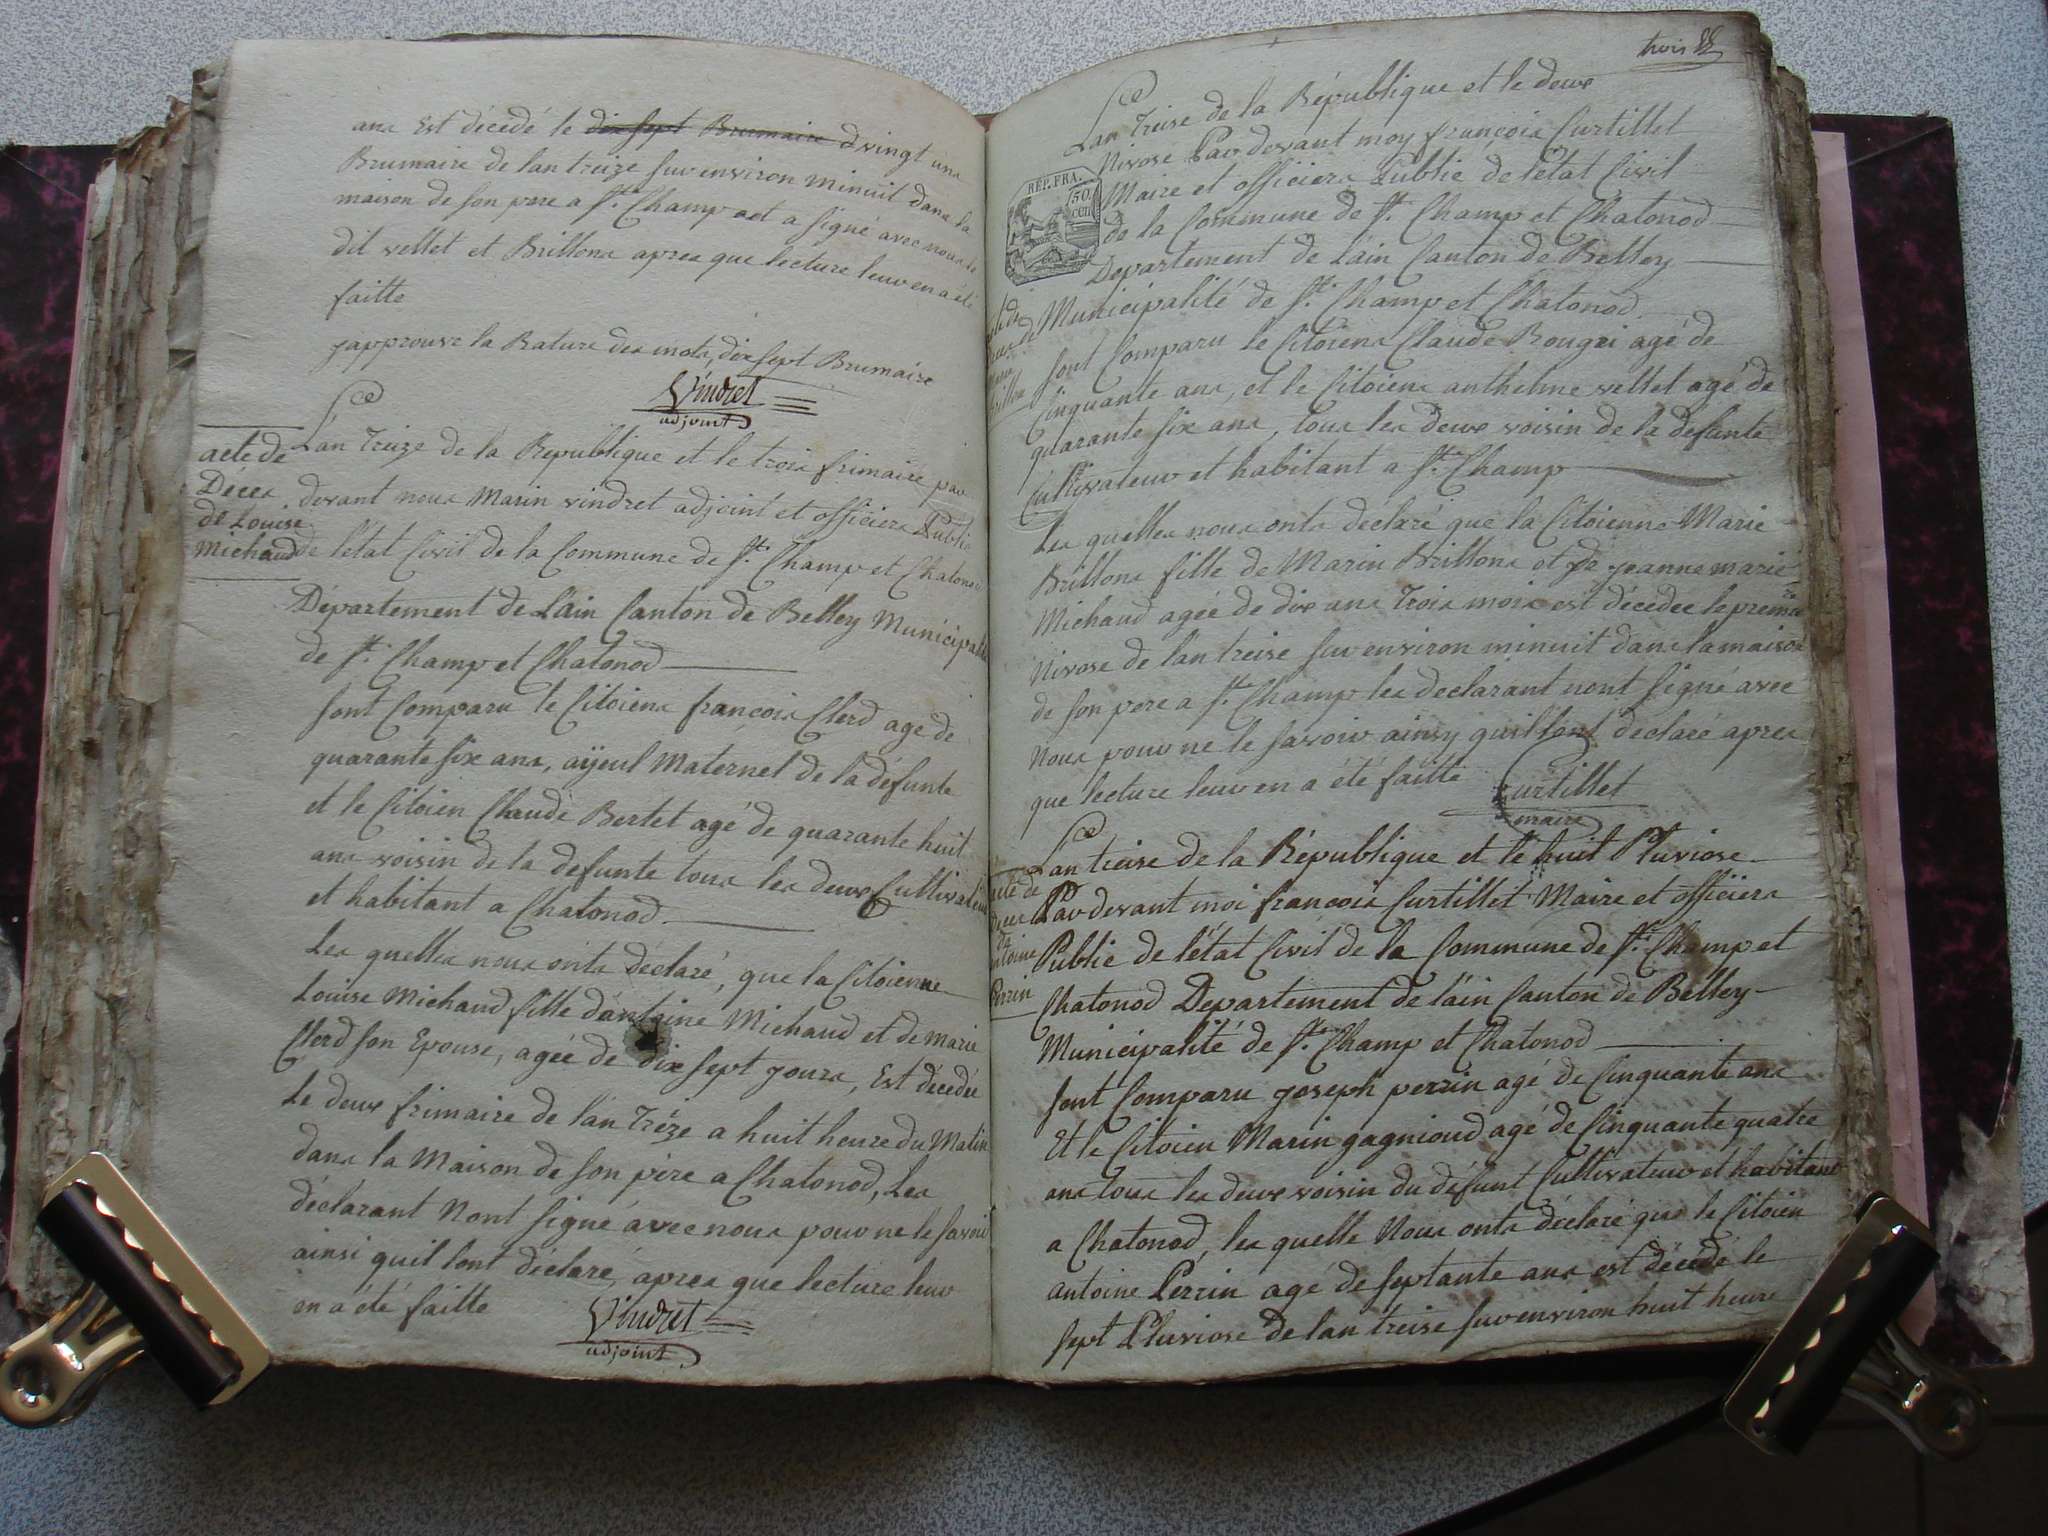 ans Est décedé le dix sept Brumaire dvingt uns
Brumaire de lan treize sur environ minuit dans la
maison de son pere a St. Champ et a signé avec nous le
dit vellet et Brillons apres que lecture leur en a été
faitte
japprouve la Rature des mots, dix sept Brumaire
Vindret
adjoint
acte de
Déces
de Louise
Michaud
L'an Treize de la Republique et le trois frimaire par
devant nous Marin vindret adjoint et officiers Public
de l'état Civil de la Commune de St. Champ et Chatonod
Département de Lain Canton de Belley Municipalité
de St. Champ et Chatonod
sont Comparu le Citoiens françois Clerd age de
quarante six ans, ayeul Maternel de la défunte
et le Citoien Claude Bertet agé de quarante huit
ans voisin de la defunte tous les deux Cultivateur
et habitant a Chatonod
Les quelles nous onts déclaré, que la Citoienne
Louise Michaud fille d'antoine Michaud et de marie
Clerd son Epouse, agée de dix sept jours, Est décedée
Le deux frimaire de l'an Trèze a huit heure du Matin
dans la Maison de son père a Chatonod, Les
déclarant Nont signé avec nous pour ne le savoir
ainsi quil lont déclaré, apres que lecture leur
en a été faitte
Vindret
adjoint
trois
Lan Treise de la République et le deux
Nivose Par devant moy françois Curtillet
Maire et officiers Public de l'état Civil
de la Commune de St. Champ et Chatonod
Departement de Lain Canton de Belley
REP. FRA.
50
CEN
Municipalité de St. Champ et Chatonod.
sont Comparu le Citoiens Claude Rougei agé de
Cinquante ans, et le Citoiens anthelme vellet agé de
quarante six ans, tous les deux voisin de la defunte
Cultivateur et habitant a St. Champ
Les quelles nous onts déclaré que la Citoienne Marie
Brillons fille de Marin Brillons et de jeanne marie
Michaud agée de dix ans Trois mois est décedee le premier
Nivose de lan treise sur environ minuit dans la maison
de son pere a St. Champ les declarant nont signé avec
Nous pour ne le savoir ainsy quil lont declaré apres
que lecture leur en a été faitte
Curtillet
maire
acte de
Déces
de
antoine
Perrin
Lan treise de la République et le huit Pluviose
Par devant moi françois Curtillet Maire et officiers
Public de l'état Civil de la Commune de St. Champ et
Chatonod Département de l'ain Canton de Belley
Municipalité de St. Champ et Chatonod
sont Comparu joseph perrin agé de Cinquante ans
Et le Citoien Marin gagnioud agé de Cinquante quatre
ans tous les deux voisin du défunt Cultivateur et habitant
a Chatonod, les quelle Nous onts déclaré que le Citoien
antoine Perrin agé de septante ans est décédé le
sept Pluviose de lan treise sur environ huit heure